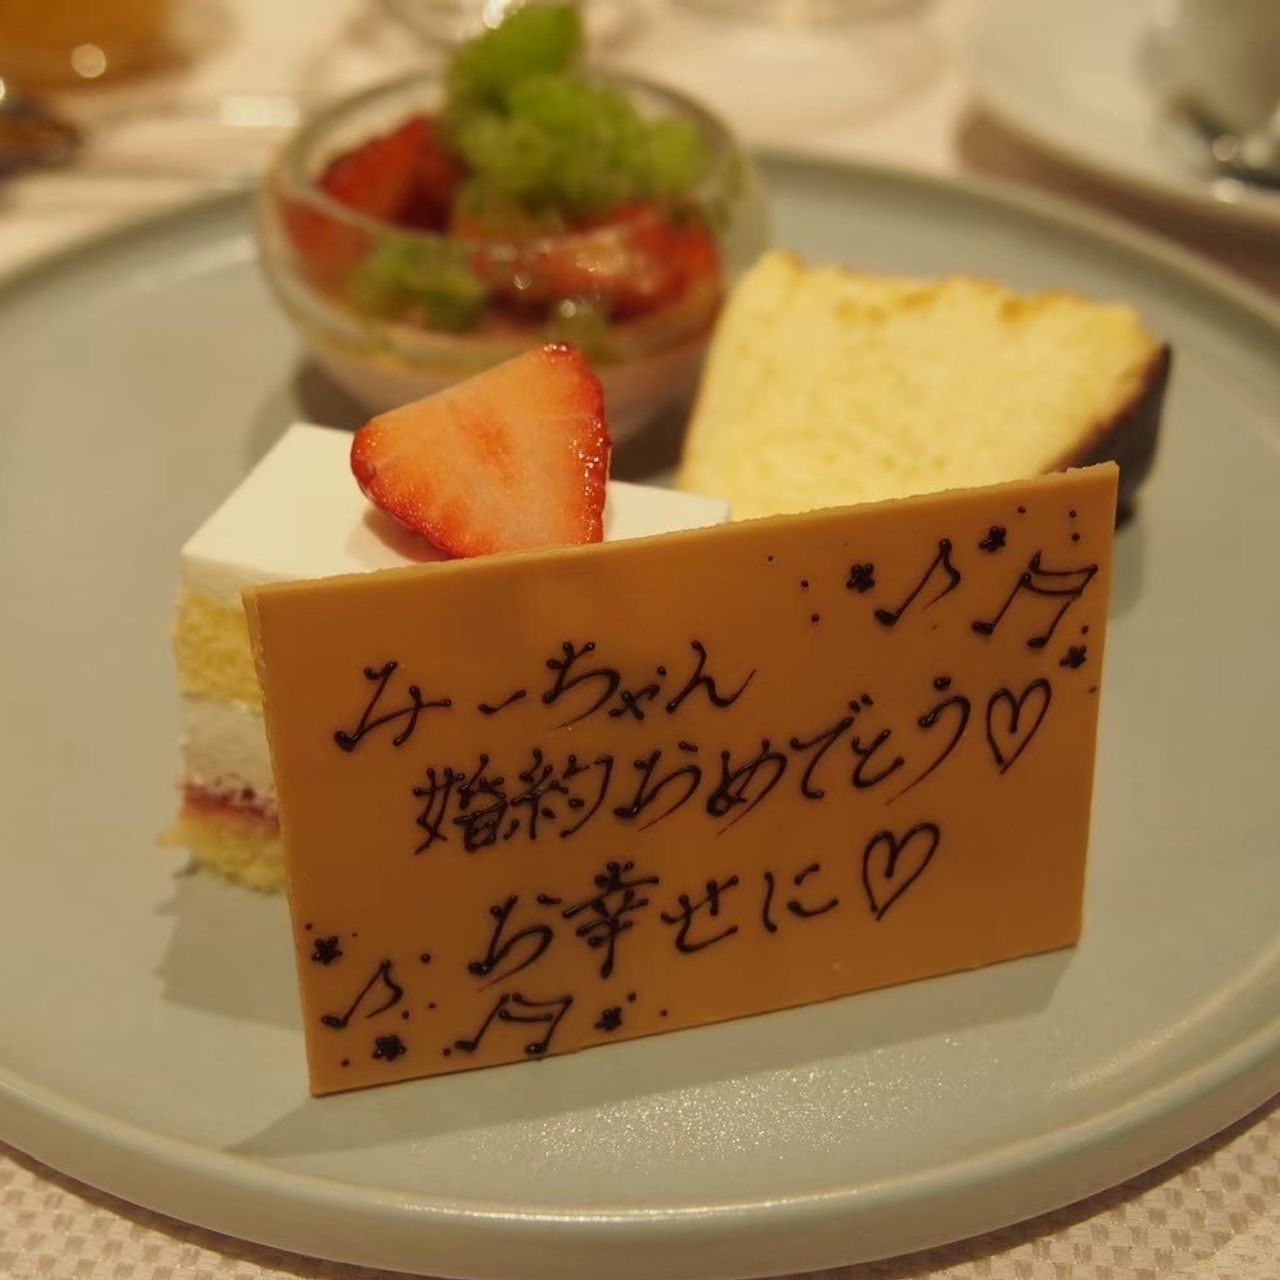 みーちゃん
婚約おめでとう♡
お幸せに♡